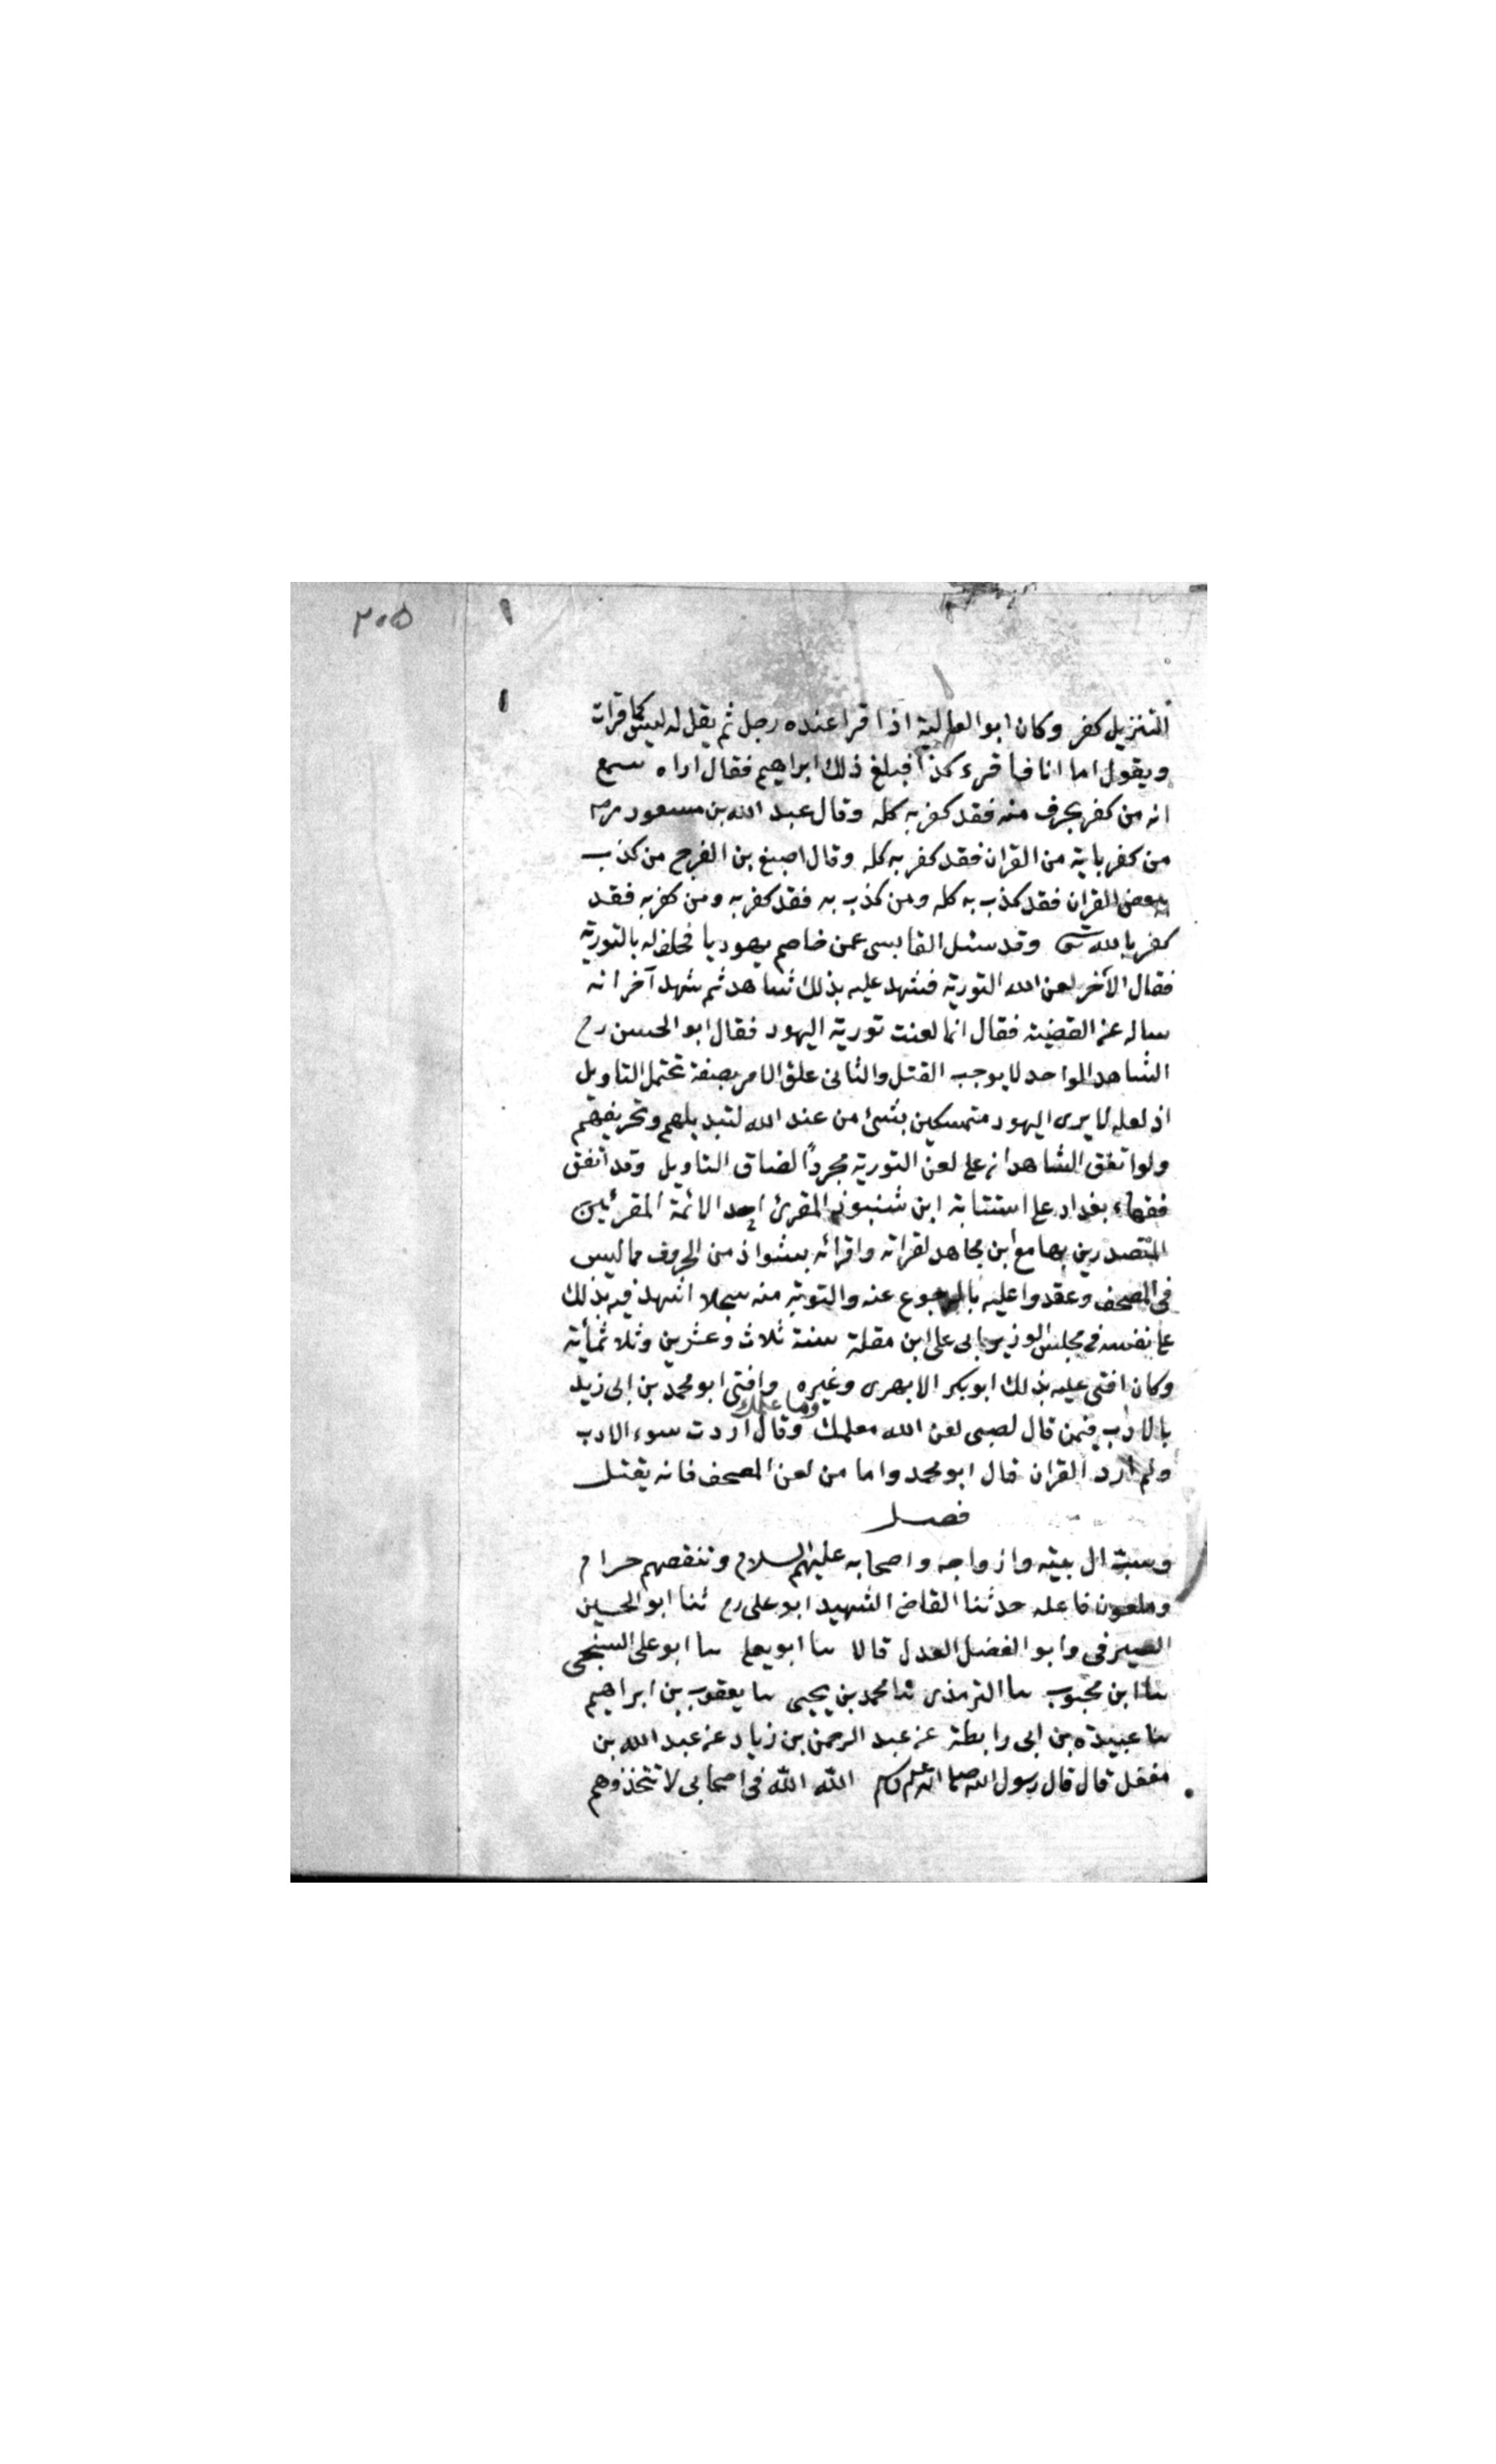 ٢٠٥
التنزيل كفر وكان ابو العالية اذا قرا عنده رجل ثم يقل له ليس كما قرات
ويقول اما انا فاقرء كذا فبلغ ذلك ابراهيم فقال اراه سمع
انه من كفر بحرف منه فقد كفر به كله وقال عبد الله بن مسعود
من كفر باية من القران فقد كفر به كله وقال اصبغ بن الفرج من كذب
ببعض القران فقد كذب به كله ومن كذب به فقد كفر به ومن كفر به فقد
كفر بالله وقد سئل القابسى عمن خاصم يهوديا فحلف له بالتورية
فقال الآخر لعن الله التورية فشهد عليه بذلك شاهد ثم شهد آخر انه
ساله عن القضية فقال انما لعنت تورية اليهود فقال ابو الحسن رح
الشاهد الواحد لا يوجب القتل والثانى علق الامر بصفة تحتمل التاويل
اذ لعله لا يرى اليهود متمسكين بشئ من عند الله لتبديلهم وتحريفهم
ولو اتفق الشاهدان على لعن التورية مجرداً لضاق التاويل وقد اتفق
فقهاء بغداد على استتابة ابن شنبوذ المقرئ احد الائمة المقرئين
المتصدرين بها مع ابن مجاهد لقراته واقرائه بشواذ من الحروف مما ليس
فى المصحف وعقدوا عليه بالرجوع عنه والتوبة منه سجلا اشهد فيه بذلك
على نفسه فى مجلس الوزير ابى على ابن مقلة سنة ثلاث وعشرين وثلاثمأية
وكان افتى عليه بذلك ابو بكر الابهرى وغيره وافتى ابو محمد بن ابى زيد
وما علمك
بالادب فيمن قال لصبى لعن الله معلمك وقال اردت سوء الادب
ولم ارد القران قال ابو محمد واما من لعن المصحف فانه يقتل
فصل
وسب ال بيته وازواجه واصحابه عليهم السلام وتنقصهم حرام
وملعون فاعله حدثنا القاضى الشهيد ابو على رح ثنا ابو الحسين
الصيرفى وابو الفضل العدل قالا سا ابو يعلى سا ابو على السنجى
سا ابن محبوب سا الترمذى ثنا محمد بن يحيى سا يعقوب بن ابراهيم
سا عبيدة بن ابى رابطة عن عبد الرحمن بن زياد عن عبد الله بن
مغفل قال قال رسول الله صلى الله عليه وسلم الله الله فى اصحابى لا تتخذوهم